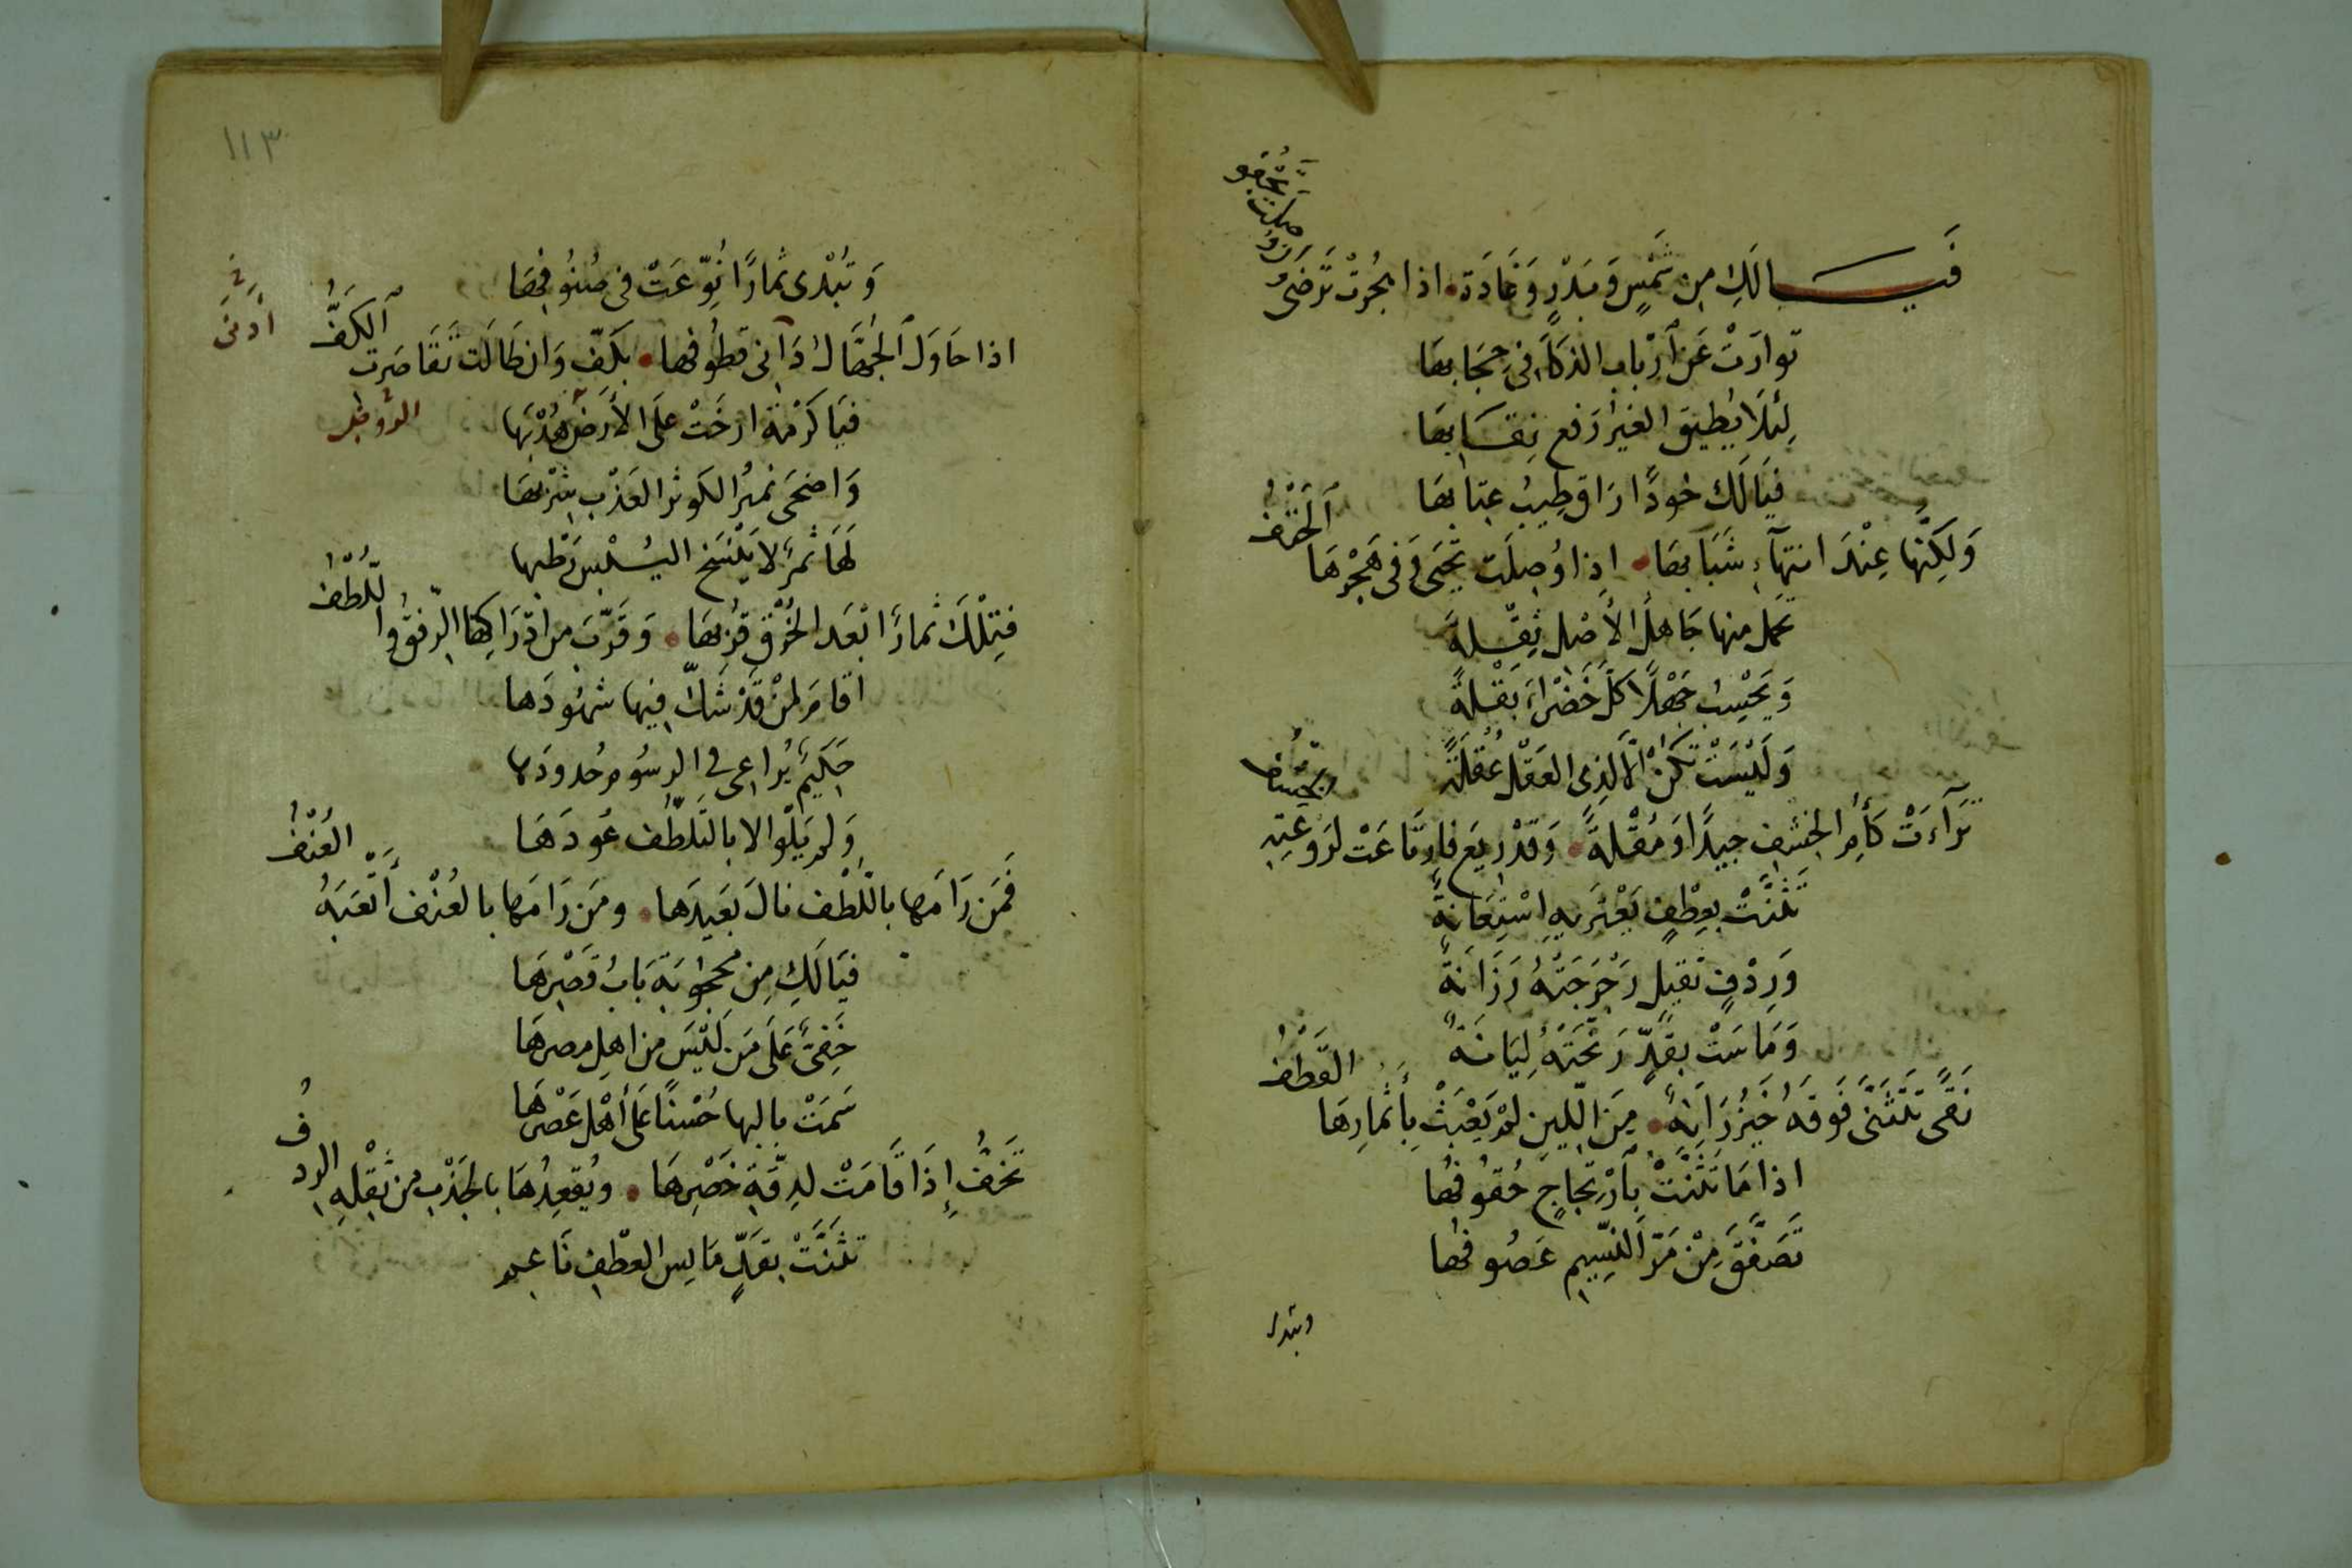 فَيَالَكِ مِن شَمْسٍ وَبَدْرٍ وَغَادَة • اذا هُجِرَتْ تَرْضَى
وَإن وصلت تَجْفُو
تَوارَتْ عَن أرْبابِ الذكَاءِ فى حِجَابهَا
لِئلَا يُطيقَ الغيرُ رَفع نِقَابهَا
فيَالَك خودًا رَاق طِيبُ عِتابهَا
وَلَكِنّها عِنْدَ انتِهآءِ شَبَابهَا • اِذا وُصِلَت تحيَى وَفى هَجْرِهَا
اَلحَتْفُ
تحمل منها جَاهلُ الأصْل ثِقْلَةً
وَيَحْسِبُ جَهْلًا كلّ خَضْرَاءَ بَقْلةً
وَلَيْسَتْ تكُنْ الّا لذِى العَقْل عُقلَةً
تَرَآءَتْ كَأُمِّ الخِشْفِ جيدًا وَمُقْلةً • وَقدْ رِيَع فارتَاعَتْ لرَوعَتِهِ
الخِشْفُ
تَثَنَّتْ بِعِطْفٍ يَعْتَريهِ اسْتِعَانةٌ
وَرِدْفٍ ثقيلٍ رَجْرَجَتْهُ رَزَانَةٌ
وَمَاسَتْ بقدٍّ رَنَّحَتْهُ لِيَانَةٌ
نَقًى تَتَثَنَّى فَوقَهُ خَيْزُرَانةٌ • مِنَ اللّينِ لم يَعْبَثْ بأثمارِهَا
القَطْفُ
اذا مَا تَثَنَّتْ بارْتِجَاجٍ حُقوُفُها
تَصَفَّقَ مِنْ مَرّ النَسِيم عَصُوفُها
وتبدى
١١٣
وَتُبْدى ثمارًا نُوّعَتْ فى صُنوُفِهَا
اذا حَاوَلَ الجُهَّالُ دَانِى قطُوفها • بكَفّ وَان طَالَت تَقَاصَرت
اَلكَفُّ
أدنَى
فيَا كَرْمَة ارخَتْ علَى الأرَضِ هُدْبَهَا
وَاضحَى نميرُ الكَوثر العَذْب شِرْبهَا
لَهَا ثمرٌ لا يَنْسَخ اليُبْسُ رَطْبها
فتِلْكَ ثمارٌ ابْعَد الخُرْق قرْبهَا • وَقَرّبَ من ادرَاكِهَا الرّفقُ وا
للّطْفُ
اقامَ لمنْ قَدْ شكّ فيها شهُودَها
حَكيمٌ يُراعى فى الرسُوم حُدودَها
وَلم يَلْوِ الا بالتلطُّف عُودَهَا
فَمَن رَامَها باللّطْف نالَ بَعَيدَهَا • ومَن رَامَها بالعُنْف أتْعَبَهُ
العُنْفُ
فيَالَكِ مِن محجوبَة بَابُ قَصْرِهَا
خَفِىٌّ عَلَى مَن لَيْسَ من اهلِ مصرهَا
سَمَتْ بالبها حُسْنًا عَلَى أهْل عَصْرهَا
تَخِفُّ إذَا قَامَتْ لدِقَّةِ خَصْرِهَا • ويُقعِدُهَا بالجَذْب من ثِقْلِهِ الرد
فُ
تَثَنَّتْ بقَدٍّ مَايسِ العِطْفِ نَاعِم